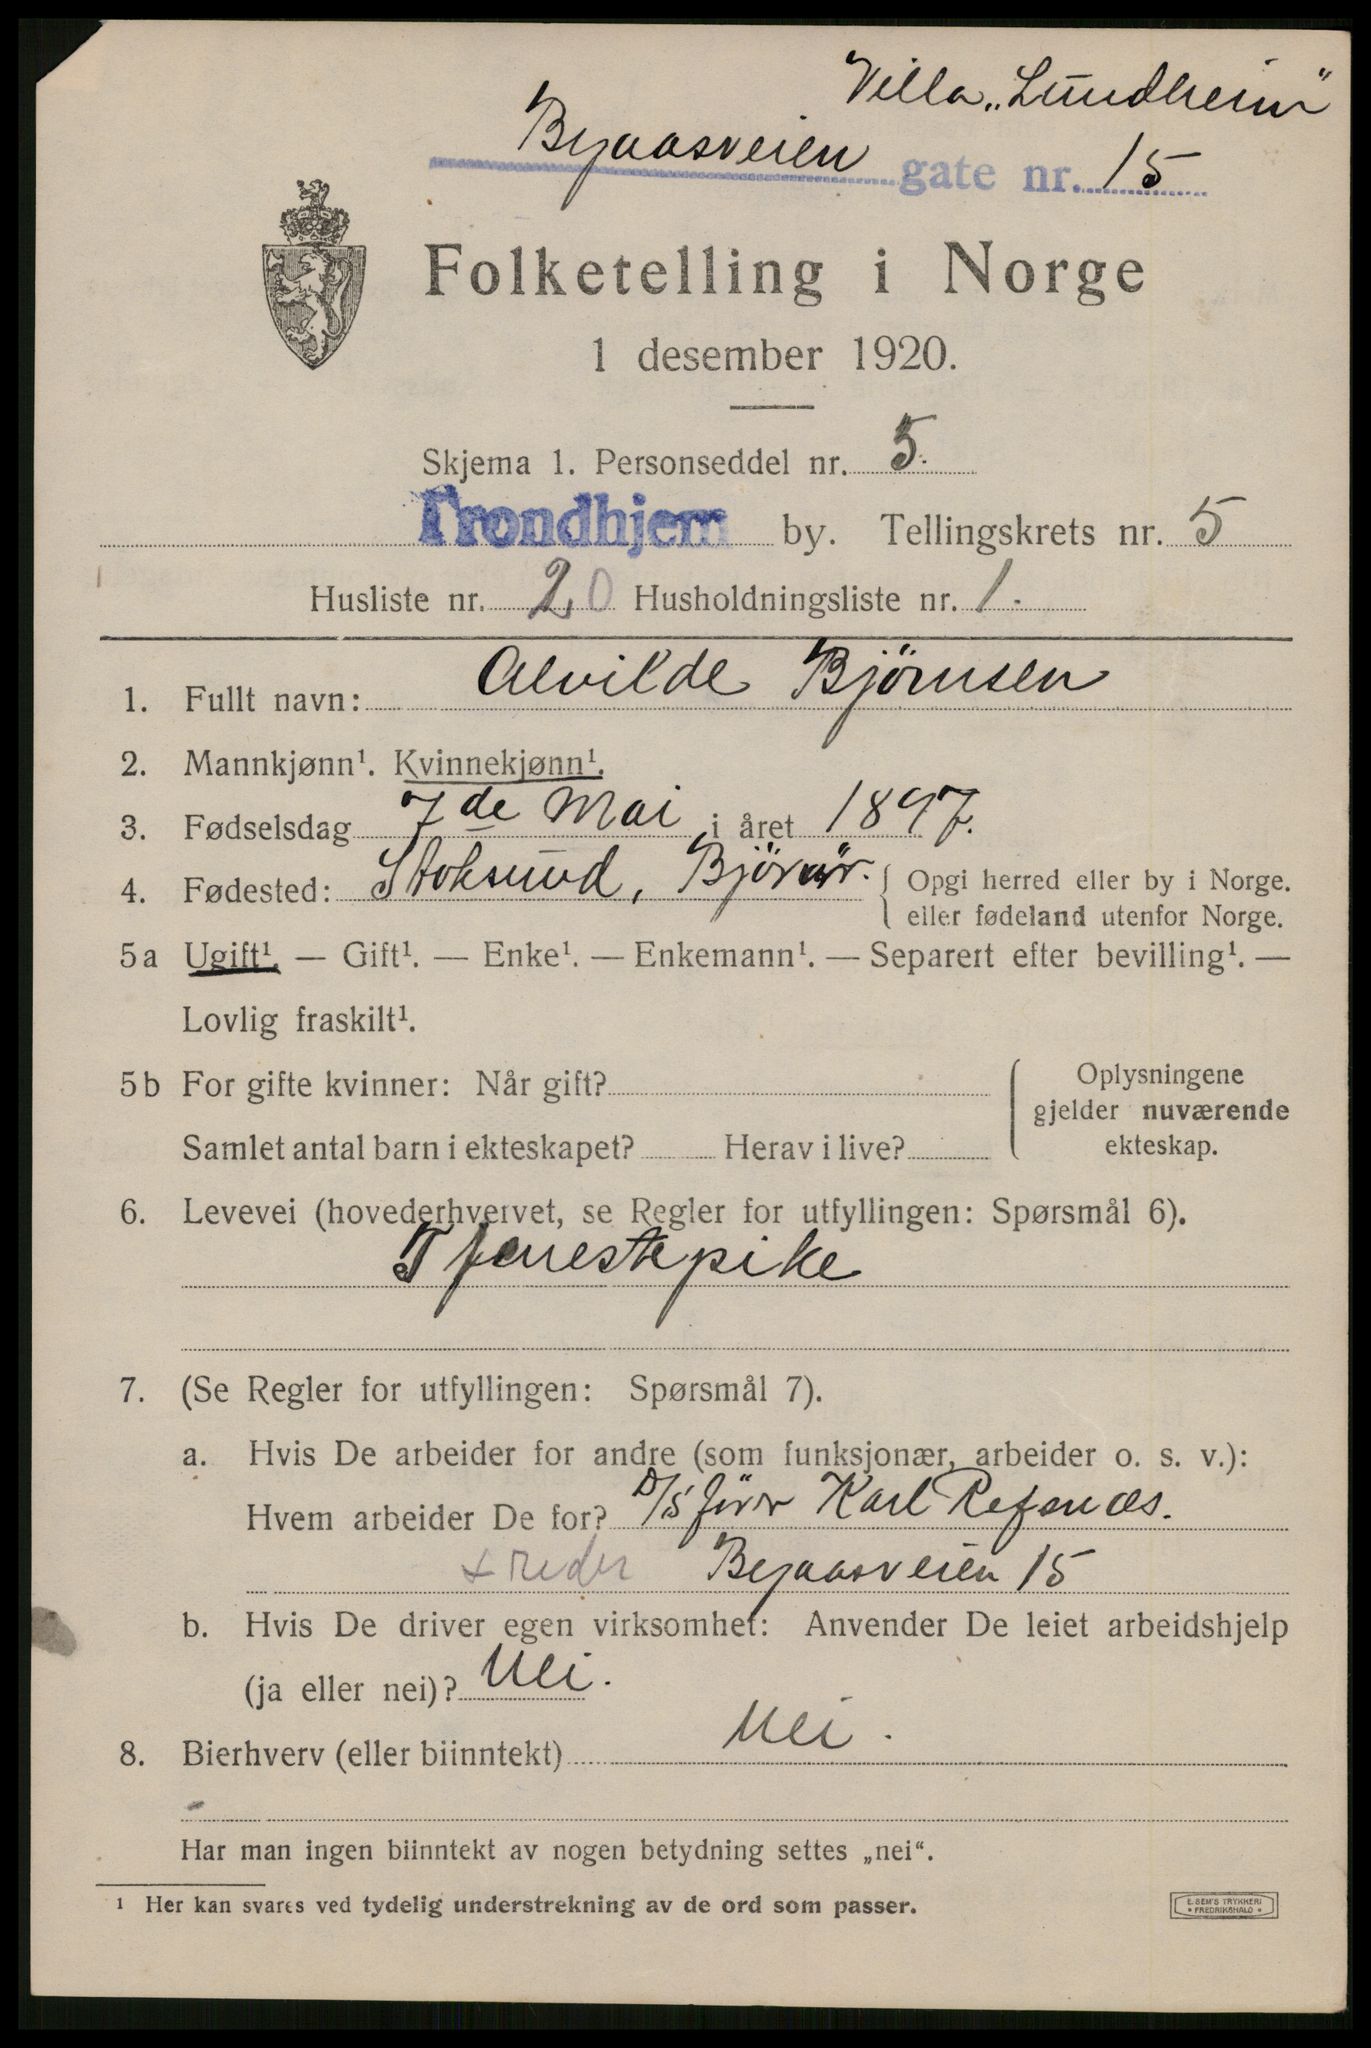 Villa „Lundheim"
Byaasveien gate nr. 15
Folketelling i Norge
1 desember 1920.
Skjema 1. Personseddel nr. 5.
Trondhjem by. Tellingskrets nr. 5
Husliste nr. 20 Husholdningsliste nr. 1.
1. Fullt navn: Alvilde Björnsen
2. Mannkjønn¹. Kvinnekjønn¹.
3. Fødselsdag 7de Mai i året 1897.
4. Fødested: Stoksund, Björnör. { Opgi herred eller by i Norge.
eller fødeland utenfor Norge.
5a Ugift¹. — Gift¹. — Enke¹. — Enkemann¹. — Separert efter bevilling¹. —
Lovlig fraskilt¹.
5b For gifte kvinner: Når gift?
Samlet antal barn i ekteskapet? Herav i live?
Oplysningene
gjelder nuværende
ekteskap.
6. Levevei (hovederhvervet, se Regler for utfyllingen: Spørsmål 6).
Tjenestepike
7. (Se Regler for utfyllingen: Spørsmål 7).
a. Hvis De arbeider for andre (som funksjonær, arbeider o. s. v.):
Hvem arbeider De for? D/S förer Karl Refsnæs.
+ reder Byaasveien 15
b. Hvis De driver egen virksomhet: Anvender De leiet arbeidshjelp
(ja eller nei)? Nei.
8. Bierhverv (eller biinntekt) Nei.
Har man ingen biinntekt av nogen betydning settes „nei“.
¹ Her kan svares ved tydelig understrekning av de ord som passer.
E. SEM'S TRYKKERI
• FREDRIKSHALD •